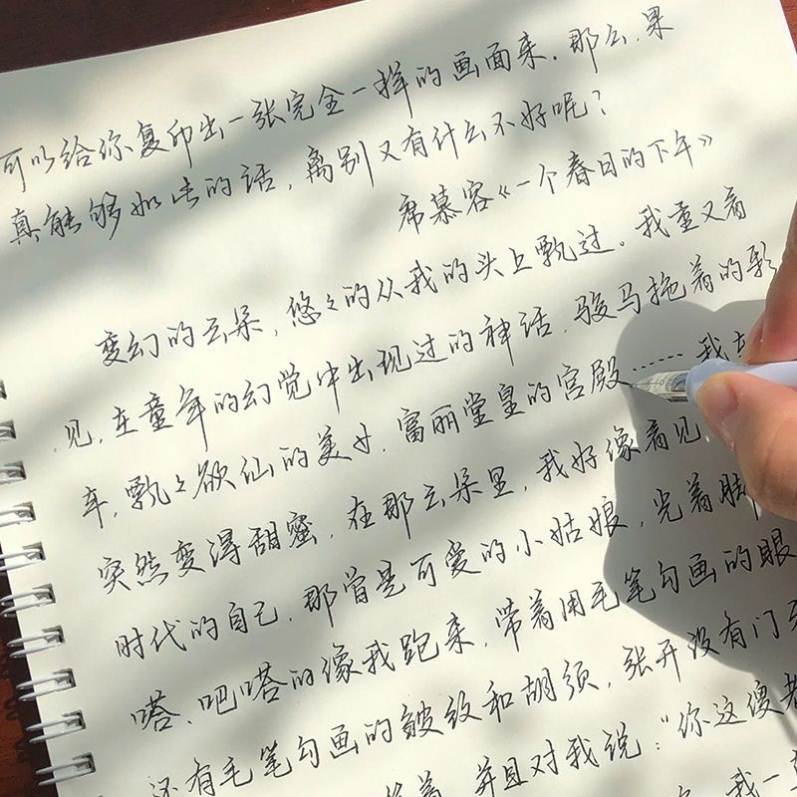 可以给你复印出一张完全一样的画面来.那么.果
真能够如此的话,离别又有什么不好呢?
席慕容《一个春日的下午》
变幻的云朵,悠々的从我的头上飘过。我重又看
见,在童年的幻觉中出现过的神话.骏马拖着的彩
车,飘々欲仙的美女.富丽堂皇的宫殿……我
突然变得甜蜜,在那云朵里,我好像看见
时代的自己.那曾是可爱的小姑娘,光着脚
嗒.吧嗒的像我跑来,带着用毛笔勾画的眼
还有毛笔勾画的皱纹和胡须,张开没有门牙
着,并且对我说:"你这傻老
我一